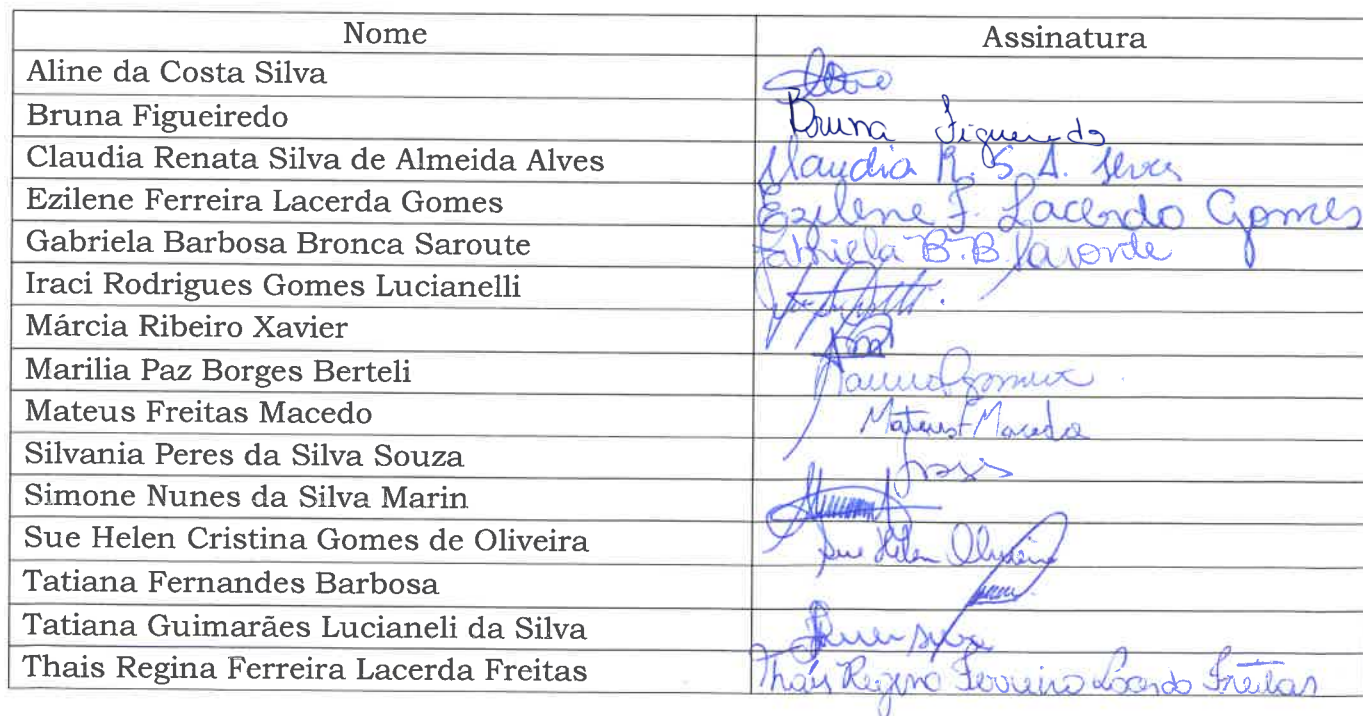 Nome Assinatura
Aline da Costa Silva
Bruna Figueiredo Bruna Figueiredo
Claudia Renata Silva de Almeida Alves Claudia R. S. A. Alves
Ezilene Ferreira Lacerda Gomes Ezilene F. Lacerda Gomes
Gabriela Barbosa Bronca Saroute Gabriela B. B. Saroute
Iraci Rodrigues Gomes Lucianelli
Márcia Ribeiro Xavier
Marilia Paz Borges Berteli
Mateus Freitas Macedo Mateus F Macedo
Silvania Peres da Silva Souza
Simone Nunes da Silva Marin
Sue Helen Cristina Gomes de Oliveira Sue Helen Oliveira
Tatiana Fernandes Barbosa
Tatiana Guimarães Lucianeli da Silva
Thais Regina Ferreira Lacerda Freitas Thais Regina Ferreira Lacerda Freitas